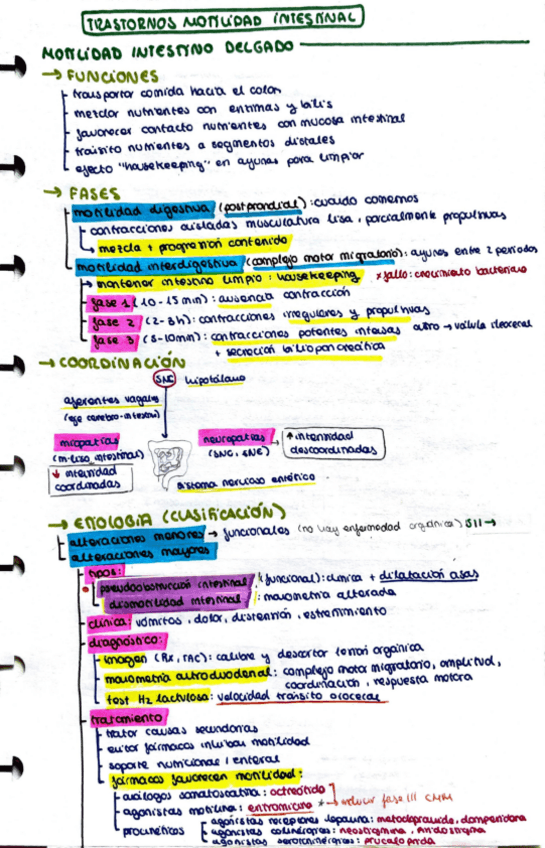 TRASTORNOS MOTILIDAD INTESTINAL
MOTILIDAD INTESTINO DELGADO
→ FUNCIONES
transportar comida hacia el colon
mezclar nutrientes con enzimas y bilis
favorecer contacto nutrientes con mucosa intestinal
tránsito nutrientes a segmentos distales
efecto "housekeeping" en ayunas para limpiar
→ FASES
motilidad digestiva (postprandial): cuando comemos
contracciones aisladas musculatura lisa, parcialmente propulsivas
mezcla + progresión contenido
motilidad interdigestiva (complejo motor migratorio): ayunas entre 2 periodos
→ mantener intestino limpio: housekeeping * fallo: crecimiento bacteriano
fase 1 (10-15 min): ausencia contracción
fase 2 (2-3h): contracciones irregulares y propulsivas
fase 3 (5-10min): contracciones potentes intensas antro → válvula ileocecal
+ secreción biliopancreática
→ COORDINACIÓN
SNC hipotálamo
aferentes vagales
(eje cerebro-intestino)
miopatías
(m. liso intestinal)
↓ intensidad
coordinadas
neuropatías
(SNC, SNE)
↑ intensidad
descoordinadas
sistema nervioso entérico
→ ETIOLOGIA (CLASIFICACIÓN)
alteraciones menores → funcionales (no hay enfermedad orgánica) SII →
alteraciones mayores
tipos:
pseudoobstrucción intestinal (funcional): clínica + dilatación asas
dismotilidad intestinal: manometría alterada
clínica: vómitos, dolor, distensión, estreñimiento
diagnóstico:
imagen (Rx, TAC): calibre y descartar lesión orgánica
manometría antroduodenal: complejo motor migratorio, amplitud,
coordinación, respuesta motora
test H2 lactulosa: velocidad tránsito orocecal
tratamiento
tratar causas secundarias
evitar fármacos inhiban motilidad
soporte nutricional / enteral
fármacos favorecen motilidad:
análogos somatostatina: octreótido
agonistas motilina: eritromicina * → inducir fase III CMM
procinéticos
agonistas receptores dopamina: metoclopramida, domperidona
agonistas colinérgicos: neostigmina, piridostigmina
agonistas serotoninérgicos: prucaloprida